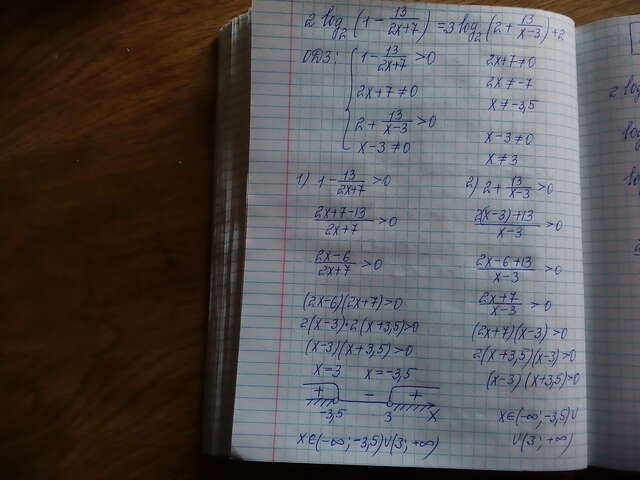 2 log₂ (1 − 13/(2x+7)) = 3 log₂ (2 + 13/(x−3)) + 2
ОДЗ: { 1 − 13/(2x+7) > 0
2x+7 ≠ 0
2 + 13/(x−3) > 0
x−3 ≠ 0
2x+7 ≠ 0
2x ≠ −7
x ≠ −3,5
x−3 ≠ 0
x ≠ 3
1) 1 − 13/(2x+7) > 0
(2x+7−13)/(2x+7) > 0
(2x−6)/(2x+7) > 0
(2x−6)(2x+7) > 0
2(x−3)·2(x+3,5) > 0
(x−3)(x+3,5) > 0
x=3 x=−3,5
+ − +
−3,5 3 x
x∈(−∞; −3,5)∪(3; +∞)
2) 2 + 13/(x−3) > 0
(2(x−3)+13)/(x−3) > 0
(2x−6+13)/(x−3) > 0
(2x+7)/(x−3) > 0
(2x+7)(x−3) > 0
2(x+3,5)(x−3) > 0
(x−3)(x+3,5) > 0
x∈(−∞; −3,5)∪
∪(3; +∞)
2 log
log
lo